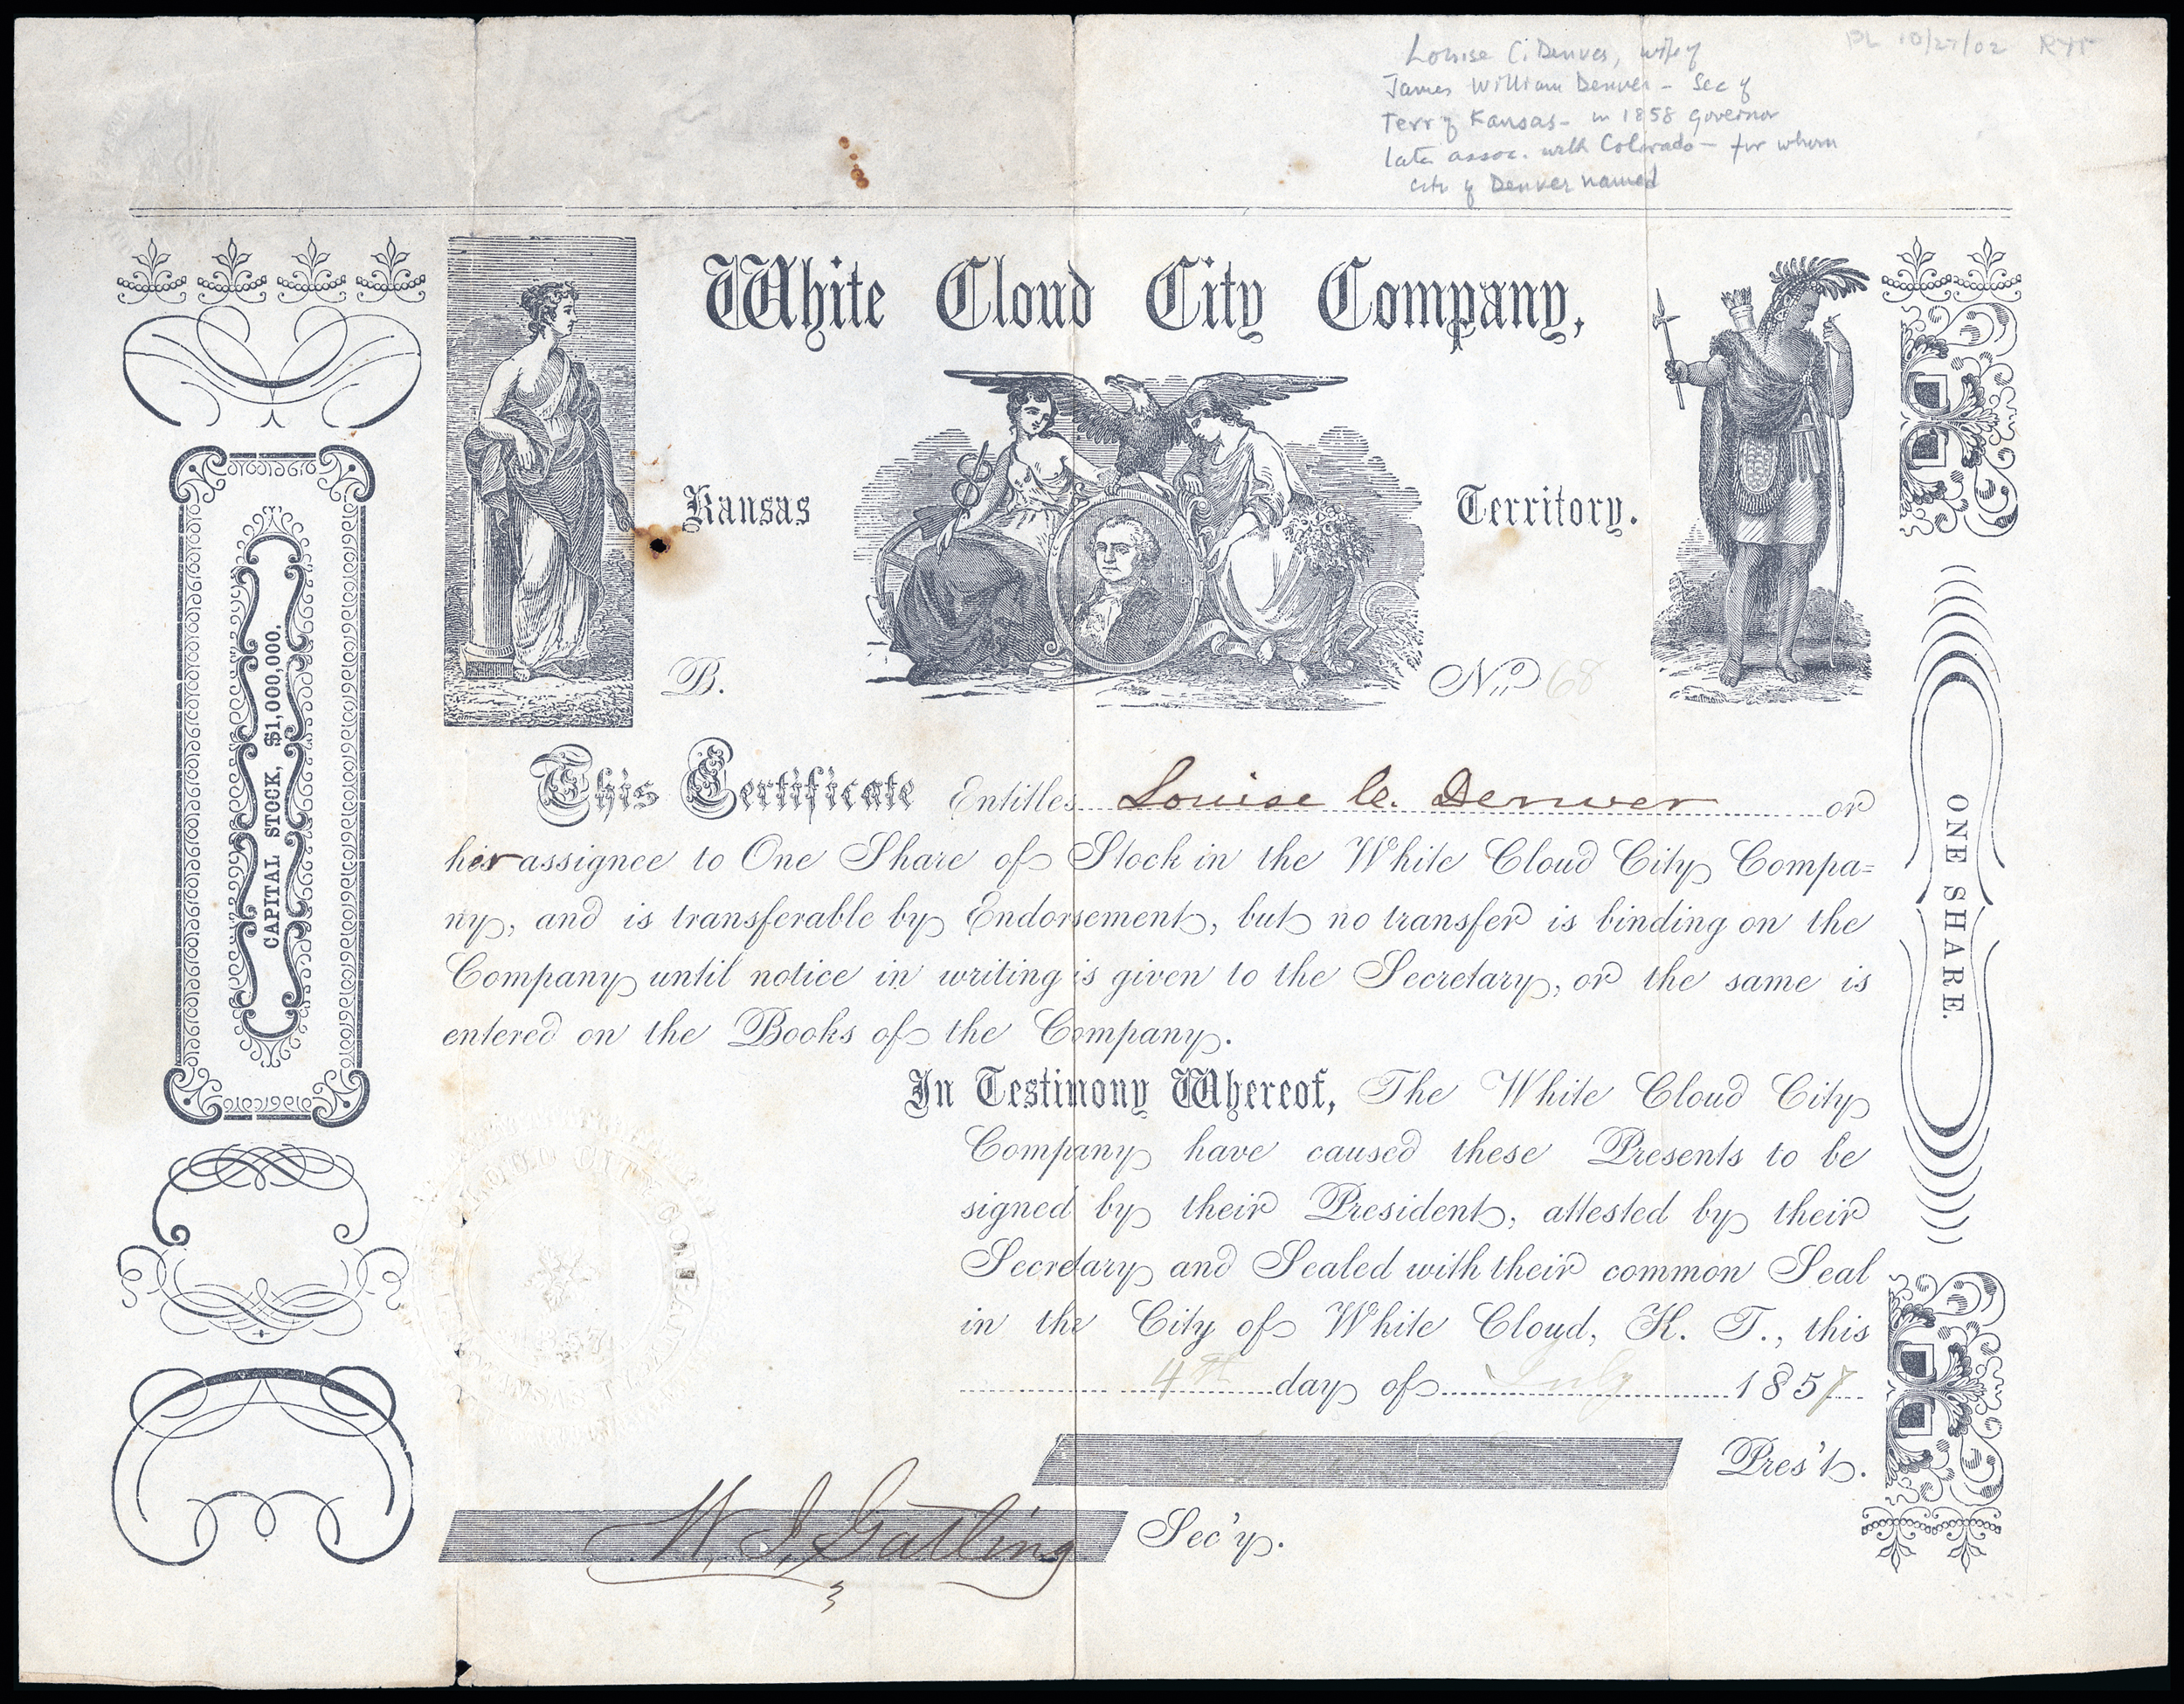 Louise C. Denver, wife of
James William Denver - Sec of
Terr of Kansas - in 1858 Governor
later assoc. with Colorado - for whom
city of Denver named
10/27/02
White Cloud City Company,
Kansas Territory.
B. No 68
CAPITAL STOCK, $1,000,000.
ONE SHARE.
This Certificate Entitles Louise C. Denver or
her assignee to One Share of Stock in the White Cloud City Compa=
ny, and is transferable by Endorsement, but no transfer is binding on the
Company until notice in writing is given to the Secretary, or the same is
entered on the Books of the Company.
In Testimony Whereof, The White Cloud City
Company have caused these Presents to be
signed by their President, attested by their
Secretary and Sealed with their common Seal
in the City of White Cloud, K. T., this
4th day of July 1857
Pres't.
W. J. Gatling Sec'y.